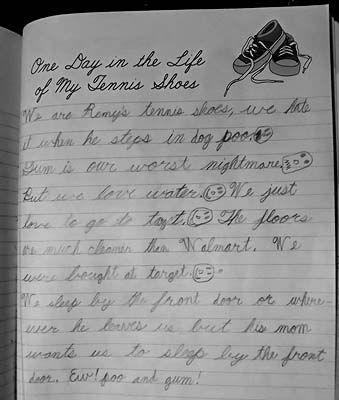 One Day in the Life
of My Tennis Shoes
We are Remy's tennis shoes, we hate
it when he steps in dog poo.
Gum is our worst nightmare
But we love water. We just
love to go to taget. The floors
are much cleaner than Walmart. We
were bought at target.
We sleep by the front door or where-
ever he leaves us but his mom
wants us to sleep by the front
door. Ew! poo and gum!